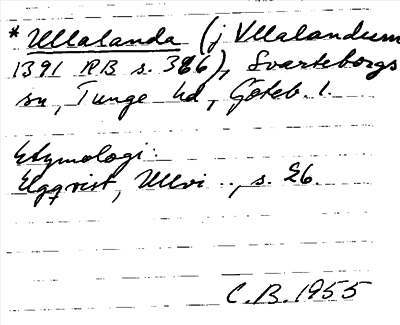 * Ullalanda (j Vllalandum
1391 RB s. 386), Svarteborgs
sn, Tunge hd, Göteb. l.
Etymologi:
Elgqvist, Ullvi .., s. 26.
C.B. 1955